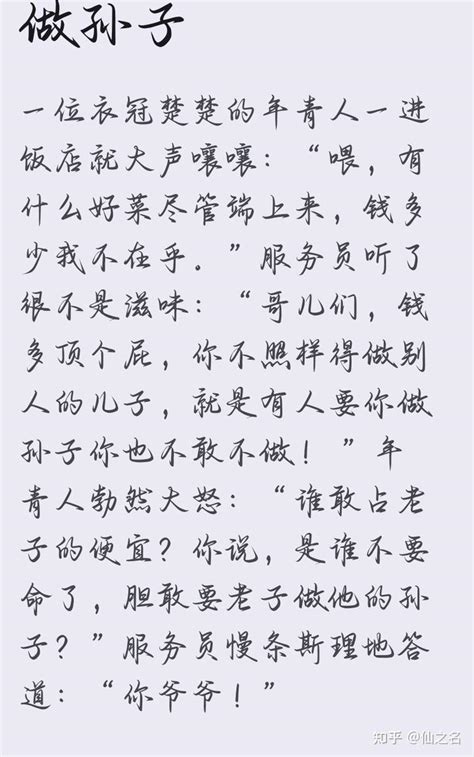 做孙子
一位衣冠楚楚的年青人一进
饭店就大声嚷嚷：“喂，有
什么好菜尽管端上来，钱多
少我不在乎．”服务员听了
很不是滋味：“哥儿们，钱
多顶个屁，你不照样得做别
人的儿子，就是有人要你做
孙子你也不敢不做！”年
青人勃然大怒：“谁敢占老
子的便宜？你说，是谁不要
命了，胆敢要老子做他的孙
子？”服务员慢条斯理地答
道：“你爷爷！”
知乎 @仙之名